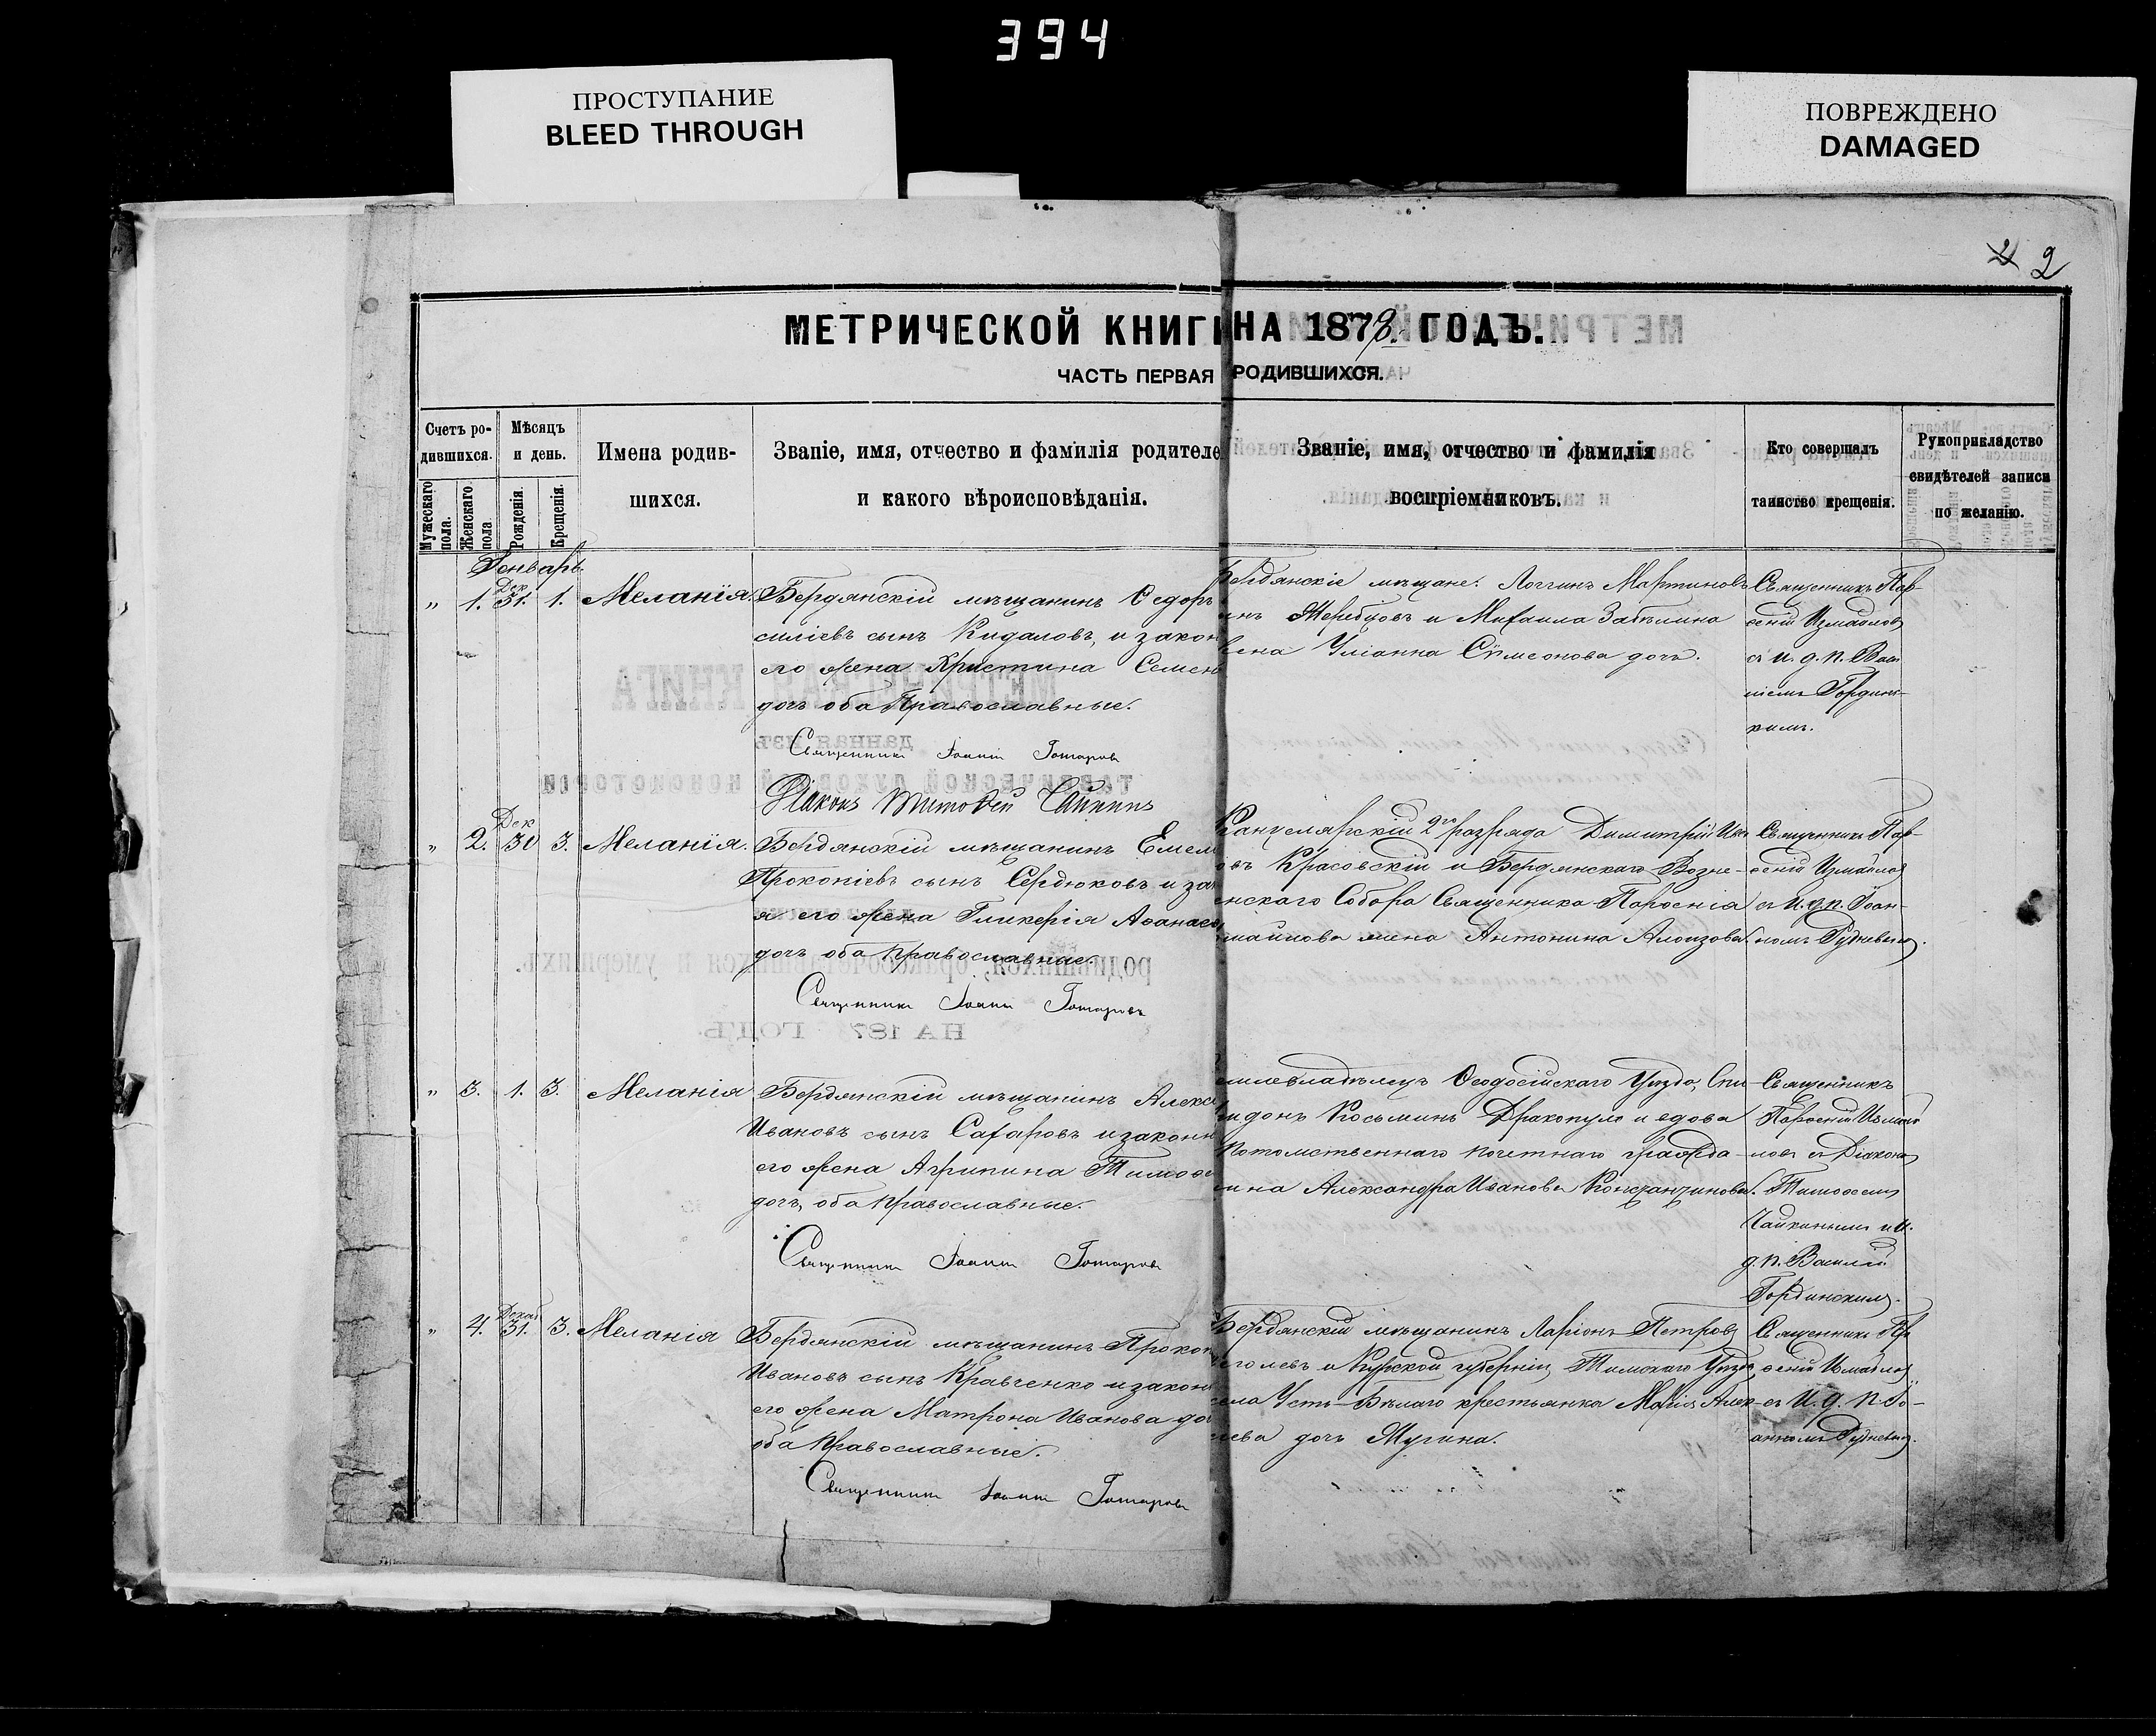 394
ПРОСТУПАНИЕ
BLEED THROUGH
ПОВРЕЖДЕНО
DAMAGED
2
МЕТРИЧЕСКОЙ КНИГИ НА 1878. ГОДЪ.
ЧАСТЬ ПЕРВАЯ РОДИВШИХСЯ.
Счетъ ро-
дившихся.
Мужескаго пола.
Женскаго пола
Мѣсяцъ
и день.
Рожденія.
Крещенія.
Имена родив-
шихся.
Званіе, имя, отчество и фамилія родителе
и какого вѣроисповѣданія.
Званіе, имя, отчество и фамилія
воспріемниковъ.
Кто совершалъ
таинство крещенія.
Рукоприкладство
свидѣтелей записи
по желанію.
Генварь
Дек
" 1. 31. 1. Меланія.
Бердянскій мѣщанинъ Ѳедоръ
силіевъ сынъ Кидаловъ, и закон
его жена Христина Семен
дочь оба Православные.
Священникъ Іоаннъ Гонтаровъ
Діаконъ Тимоѳей Чайкинъ
Бердянскіе мѣщане: Логгинъ Мартиновъ
инъ Жеребцовъ и Михаила Забѣлина
жена Уліанна Сѵмеонова дочь.
Священникъ Пар-
ѳеній Измайловъ
съ и. д. п. Васи
ліемъ Гордин-
кимъ.
Дек
" 2. 30 3. Меланія.
Бердянскій мѣщанинъ Емел
Прокопіевъ сынъ Сердюковъ и за
я его жена Гликерія Аѳанасе
дочь оба православные.
Священникъ Іоаннъ Гонтаровъ
Канцелярскій 2го разряда Димитрій Ива
овъ Красовскій и Бердянскаго Возне-
енскаго Собора Священника Парѳенія
змайлова жена Антонина Алоизова.
Священникъ Пар-
ѳеній Измайловъ
съ и. д. п. Іоан-
номъ Гудневымъ.
" 3. 1. 3. Меланія
Бердянскій мѣщанинъ Алекс
Ивановъ сынъ Сахаровъ и законн
его жена Агрипина Тимоѳе
дочь, оба православные.
Священникъ Іоаннъ Гонтаровъ
емлевладѣлецъ Ѳеодосійскаго Уѣзда, Спи
идонъ Косьминъ Дракопуло и вдова
потомственнаго почетнаго гражда-
ина Александра Иванова Константинова.
Священникъ
Парѳеній Измай
ловъ съ Діакономъ
Тимоѳеемъ
Чайкинымъ и И.
д. п. Василій
Гординскимъ.
Декаб
" 4. 31. 3. Меланія
Бердянскій мѣщанинъ Прокоп
Ивановъ сынъ Кравченко и законн
его жена Матрона Иванова до
оба православные.
Священникъ Іоаннъ Гонтаровъ
Бердянскій мѣщанинъ Ларіонъ Петровъ
голевъ и Курской губерніи, Тимскаго Уѣзда
села Усть-Бѣлаго крестьянка Марія Алек-
ѣева дочь Мугина.
Священникъ Пар
ѳеній Измайловъ
съ И. д. п. Іо-
анномъ Гудневымъ.